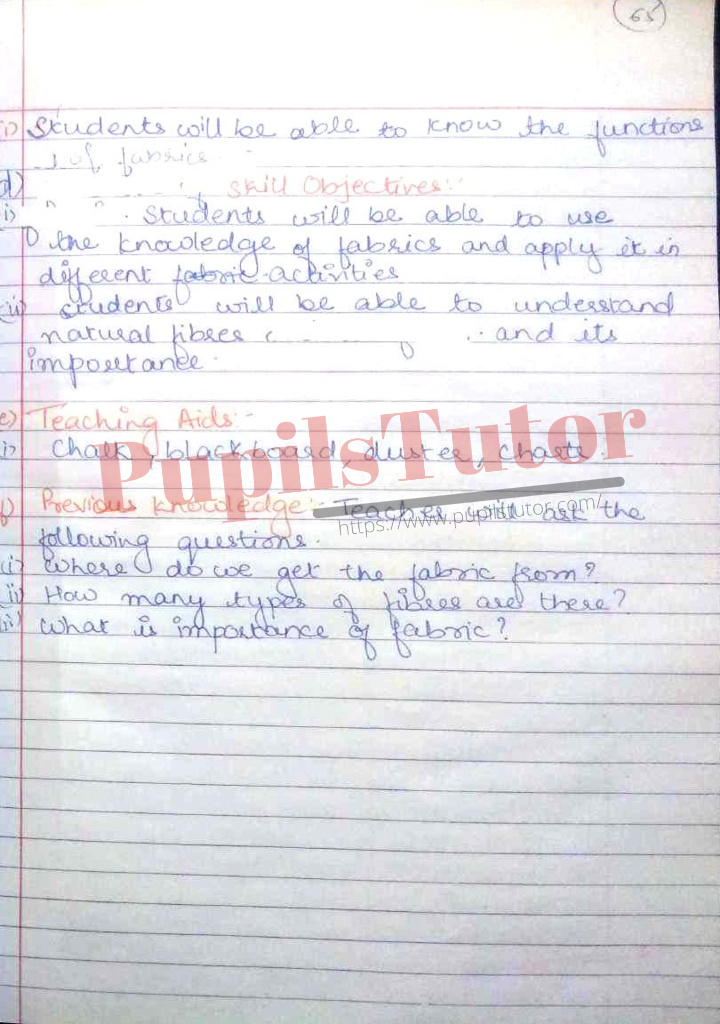 65
i) Students will be able to know the functions
of fabrics.
d) Skill Objectives:-
i) Students will be able to use
the knowledge of fabrics and apply it in
different fabric activities
ii) students will be able to understand
natural fibres and its
importance.
e) Teaching Aids:-
i) Chalk, blackboard, duster, charts.
PupilsTutor
f) Previous knowledge:- Teacher will ask the
https://www.pupilstutor.com/
following questions.
(i) Where do we get the fabric from?
ii) How many types of fibres are there?
iii) What is importance of fabric?